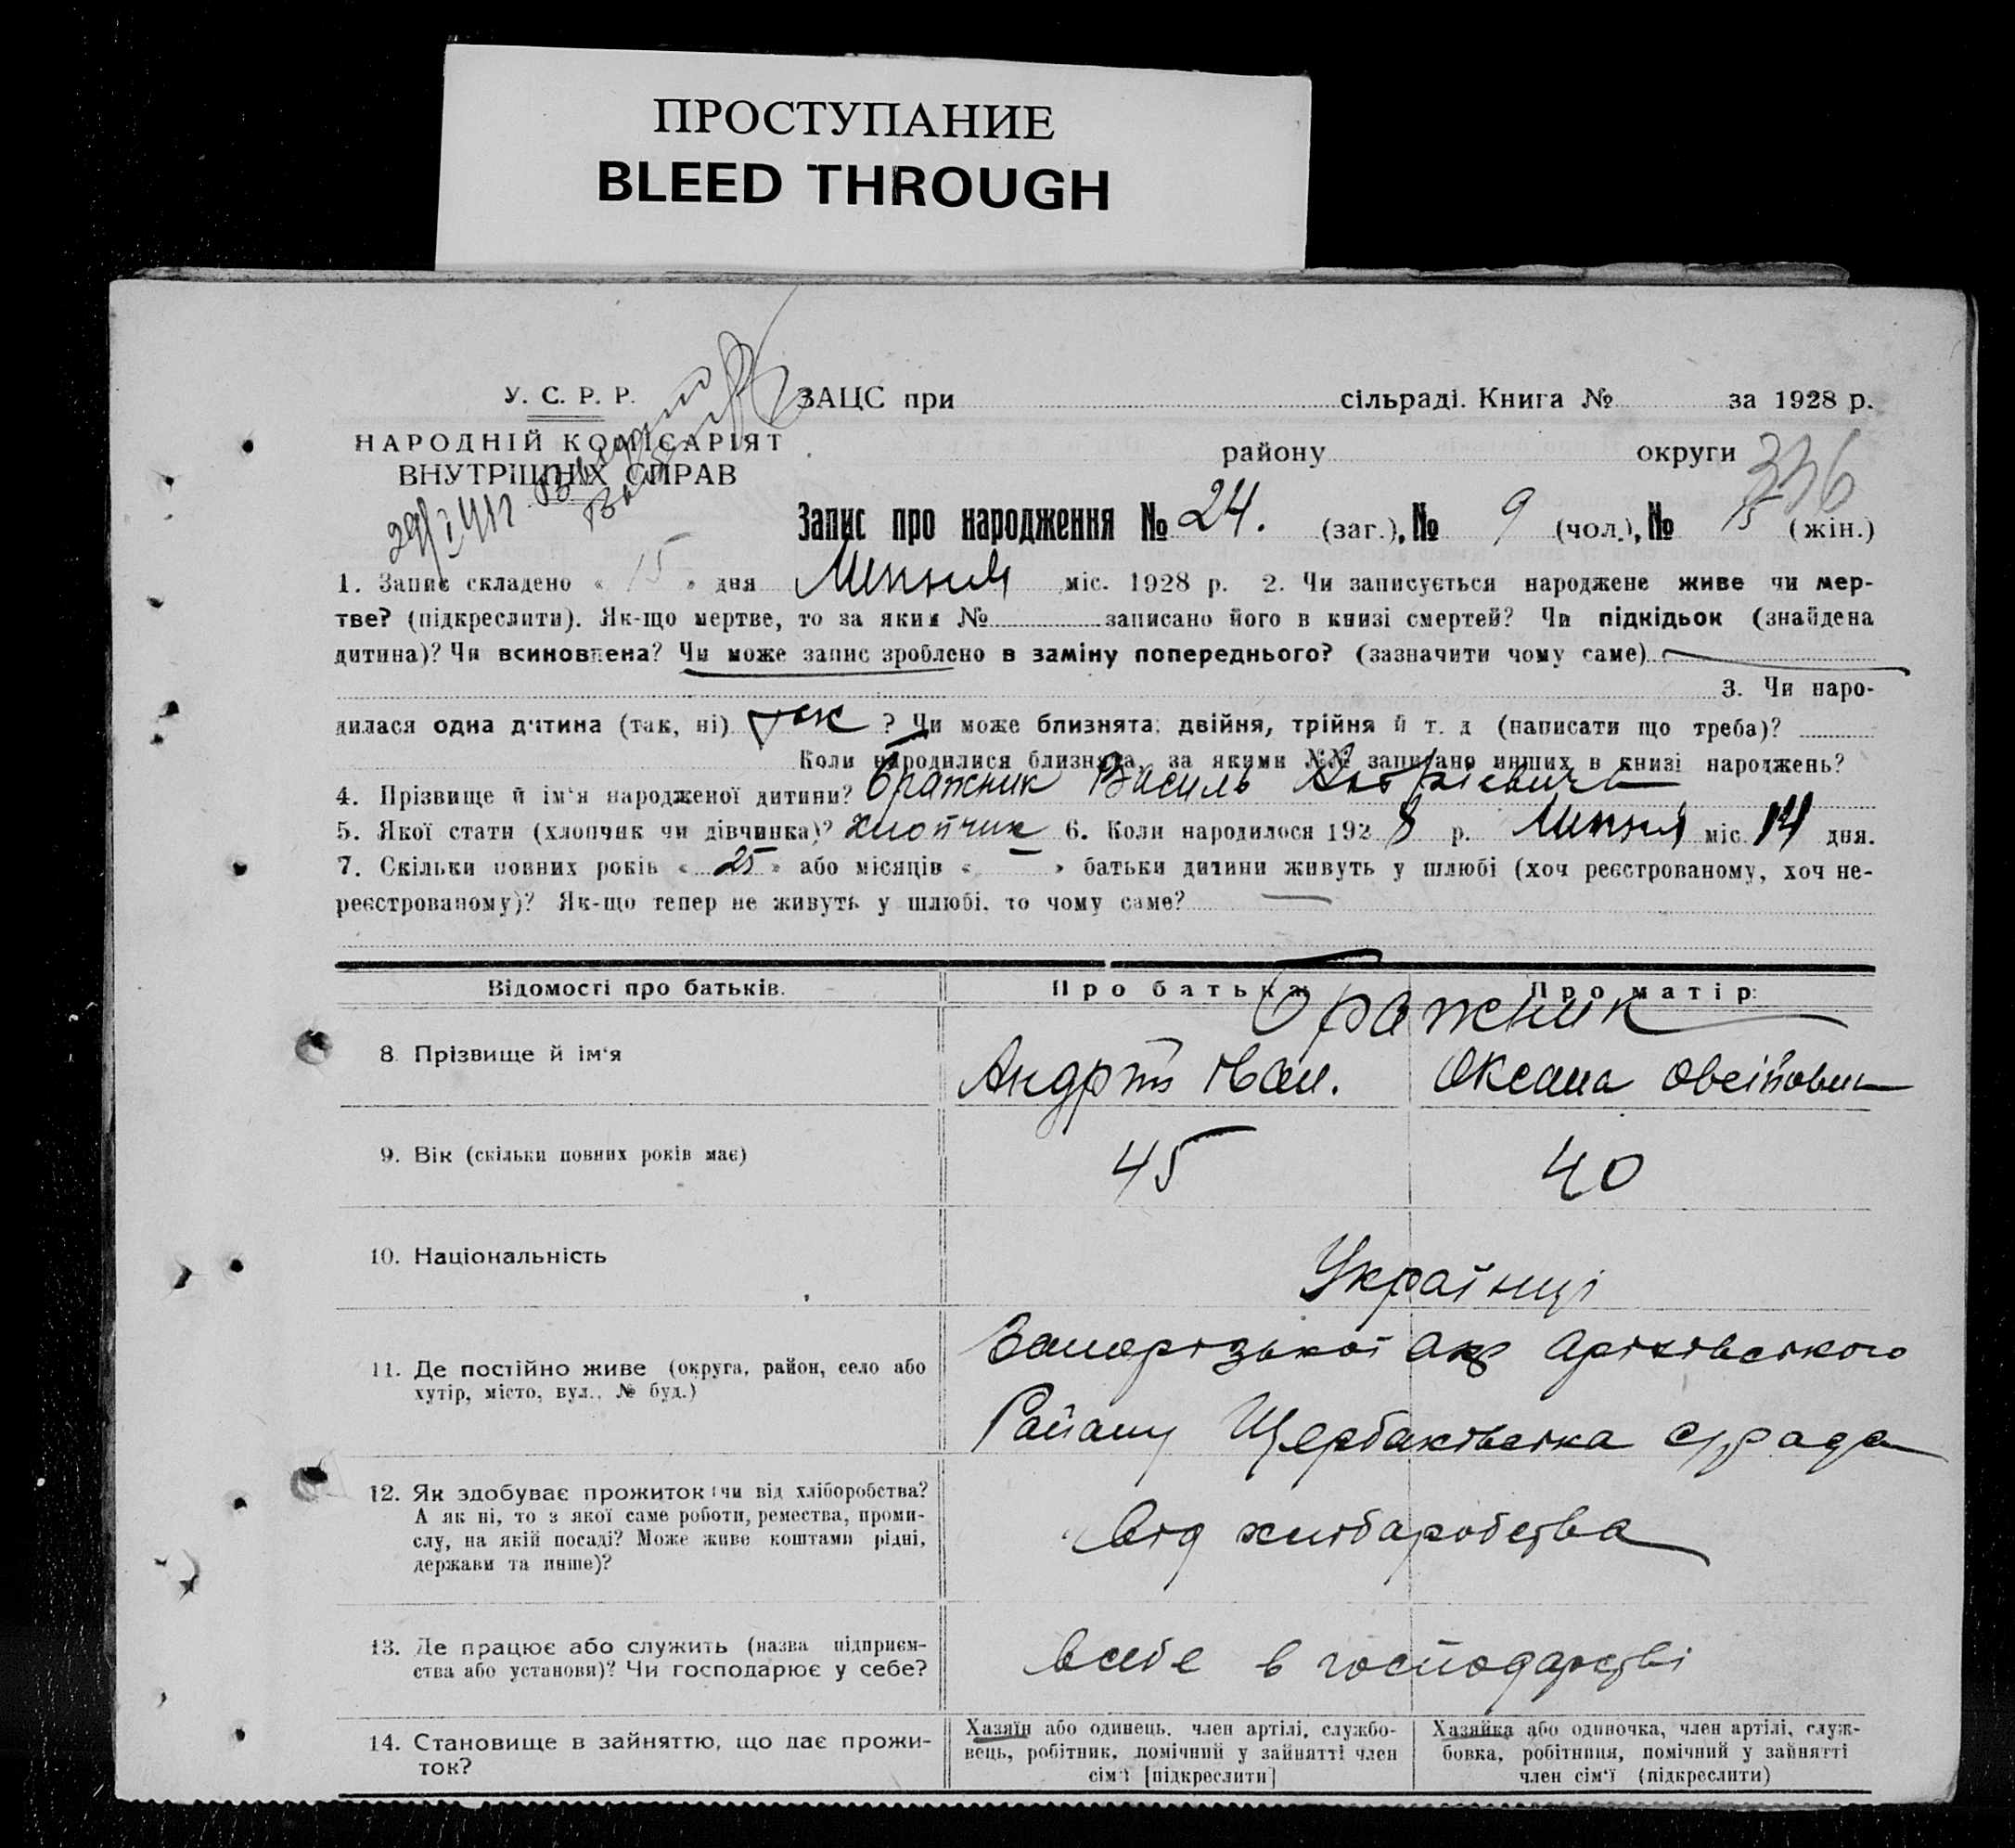 ПРОСТУПАНИЕ
BLEED THROUGH
У. С. Р. Р.
НАРОДНІЙ КОМІСАРІЯТ
ВНУТРІШНІХ СПРАВ
ЗАЦС при сільраді. Книга № за 1928 р.
району округи
336
Запис про народження № 24. (заг.), № 9 (чол.), № 15 (жін.)
1. Запис складено « 15 » дня Липня міс. 1928 р. 2. Чи записується народжене живе чи мер-
тве? (підкреслити). Як-що мертве, то за яким № записано його в книзі смертей? Чи підкідьок (знайдена
дитина)? Чи всиновлена? Чи може запис зроблено в заміну попереднього? (зазначити чому саме)
3. Чи наро-
дилася одна дитина (так, ні) так ? Чи може близнята: двійня, трійня й т. д (написати що треба)?
Коли народилися близнята, за якими №№ записано инших в книзі народжень?
4. Прізвище й ім‘я народженої дитини? Бражник Василь
5. Якої стати (хлопчик чи дівчинка)? хлопчик 6. Коли народилося 1928 р. Липня міс. 14 дня.
7. Скільки повних років « 25 » або місяців « — » батьки дитини живуть у шлюбі (хоч реєстрованому, хоч не-
реєстрованому)? Як-що тепер не живуть у шлюбі, то чому саме? —
Відомості про батьків. Про батька Про матір:
Бражник
8. Прізвище й ім‘я Андрій Іван. Оксана Овсіповна
9. Вік (скільки повних років має) 45 40
10. Національність Українці
11. Де постійно живе (округа, район, село або
хутір, місто, вул., № буд.)
Запорізької окр Оріхівського
Району Щербаківська с/рада
12. Як здобуває прожиток (чи від хліборобства?
А як ні, то з якої саме роботи, ремества, проми-
слу, на якій посаді? Може живе коштами рідні,
держави та инше)?
Від хлібаробства
13. Де працює або служить (назва підприєм-
ства або установи)? Чи господарює у себе?
в себе в господарстві
14. Становище в зайняттю, що дає прожи-
ток?
Хазяїн або одинець, член артілі, службо-
вець, робітник, помічний у зайнятті член
сім‘ї [підкреслити]
Хазяйка або одиночка, член артілі, служ-
бовка, робітниця, помічний у зайнятті
член сім‘ї (підкреслити)